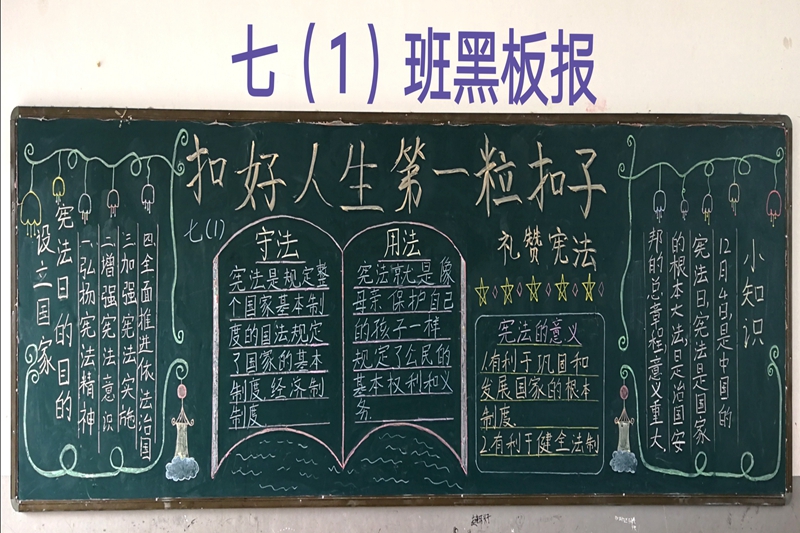 七（1）班黑板报
扣好人生第一粒扣子
七(1)
设立国家
宪法日的目的
一.弘扬宪法精神
二.增强宪法意识
三.加强宪法实施
四.全面推进依法治国
守法
宪法是规定整
个国家基本制
度的国法,规定
了国家的基本
制度,经济制
制度
用法
宪法就是像
母亲,保护自己
的孩子一样
规定了公民的
基本权利和义
务
礼赞宪法
宪法的意义
1.有利于巩固和
发展国家的根本
制度
2.有利于健全法制
小知识
12月4日,是中国的
宪法日,宪法是国家
的根本大法,是治国安
邦的总章程,意义重大.